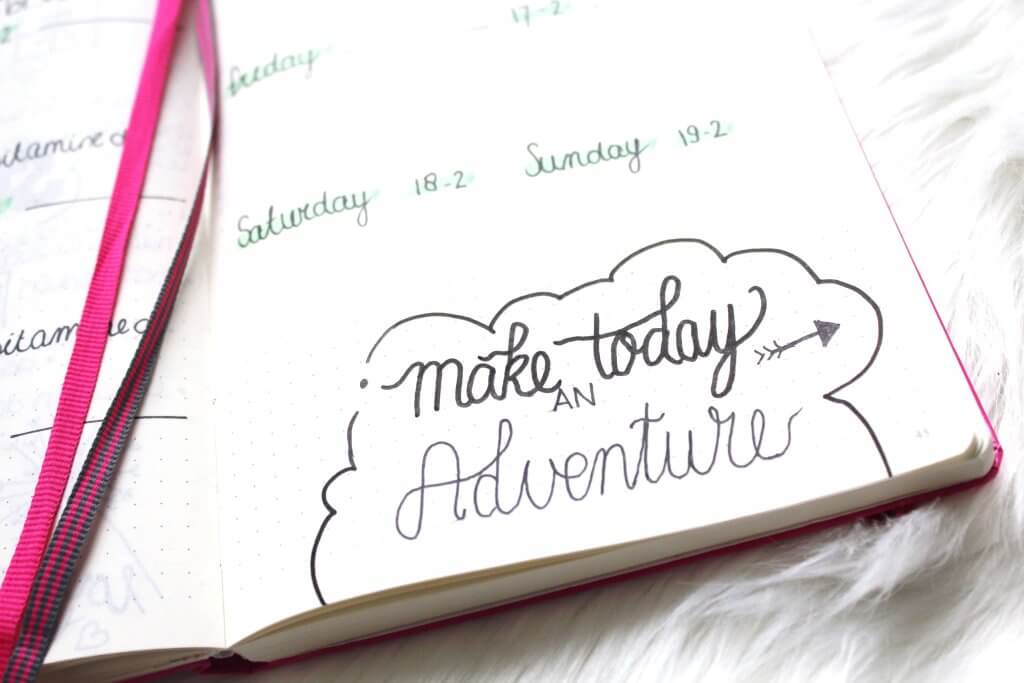 17-2
friday
Sunday 19-2
Saturday 18-2
make today
AN
Adventure